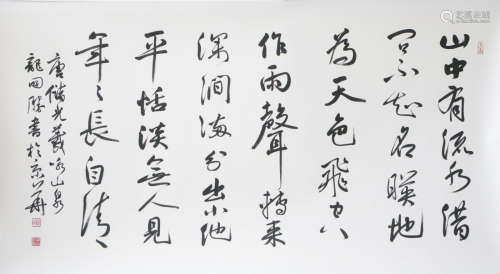 山中有流水借
問不知名暎地
為天色飛空
作雨聲轉来
深澗滿分出小池
平恬淡無人見
年々長自清
唐儲光羲詠山泉
書於京華